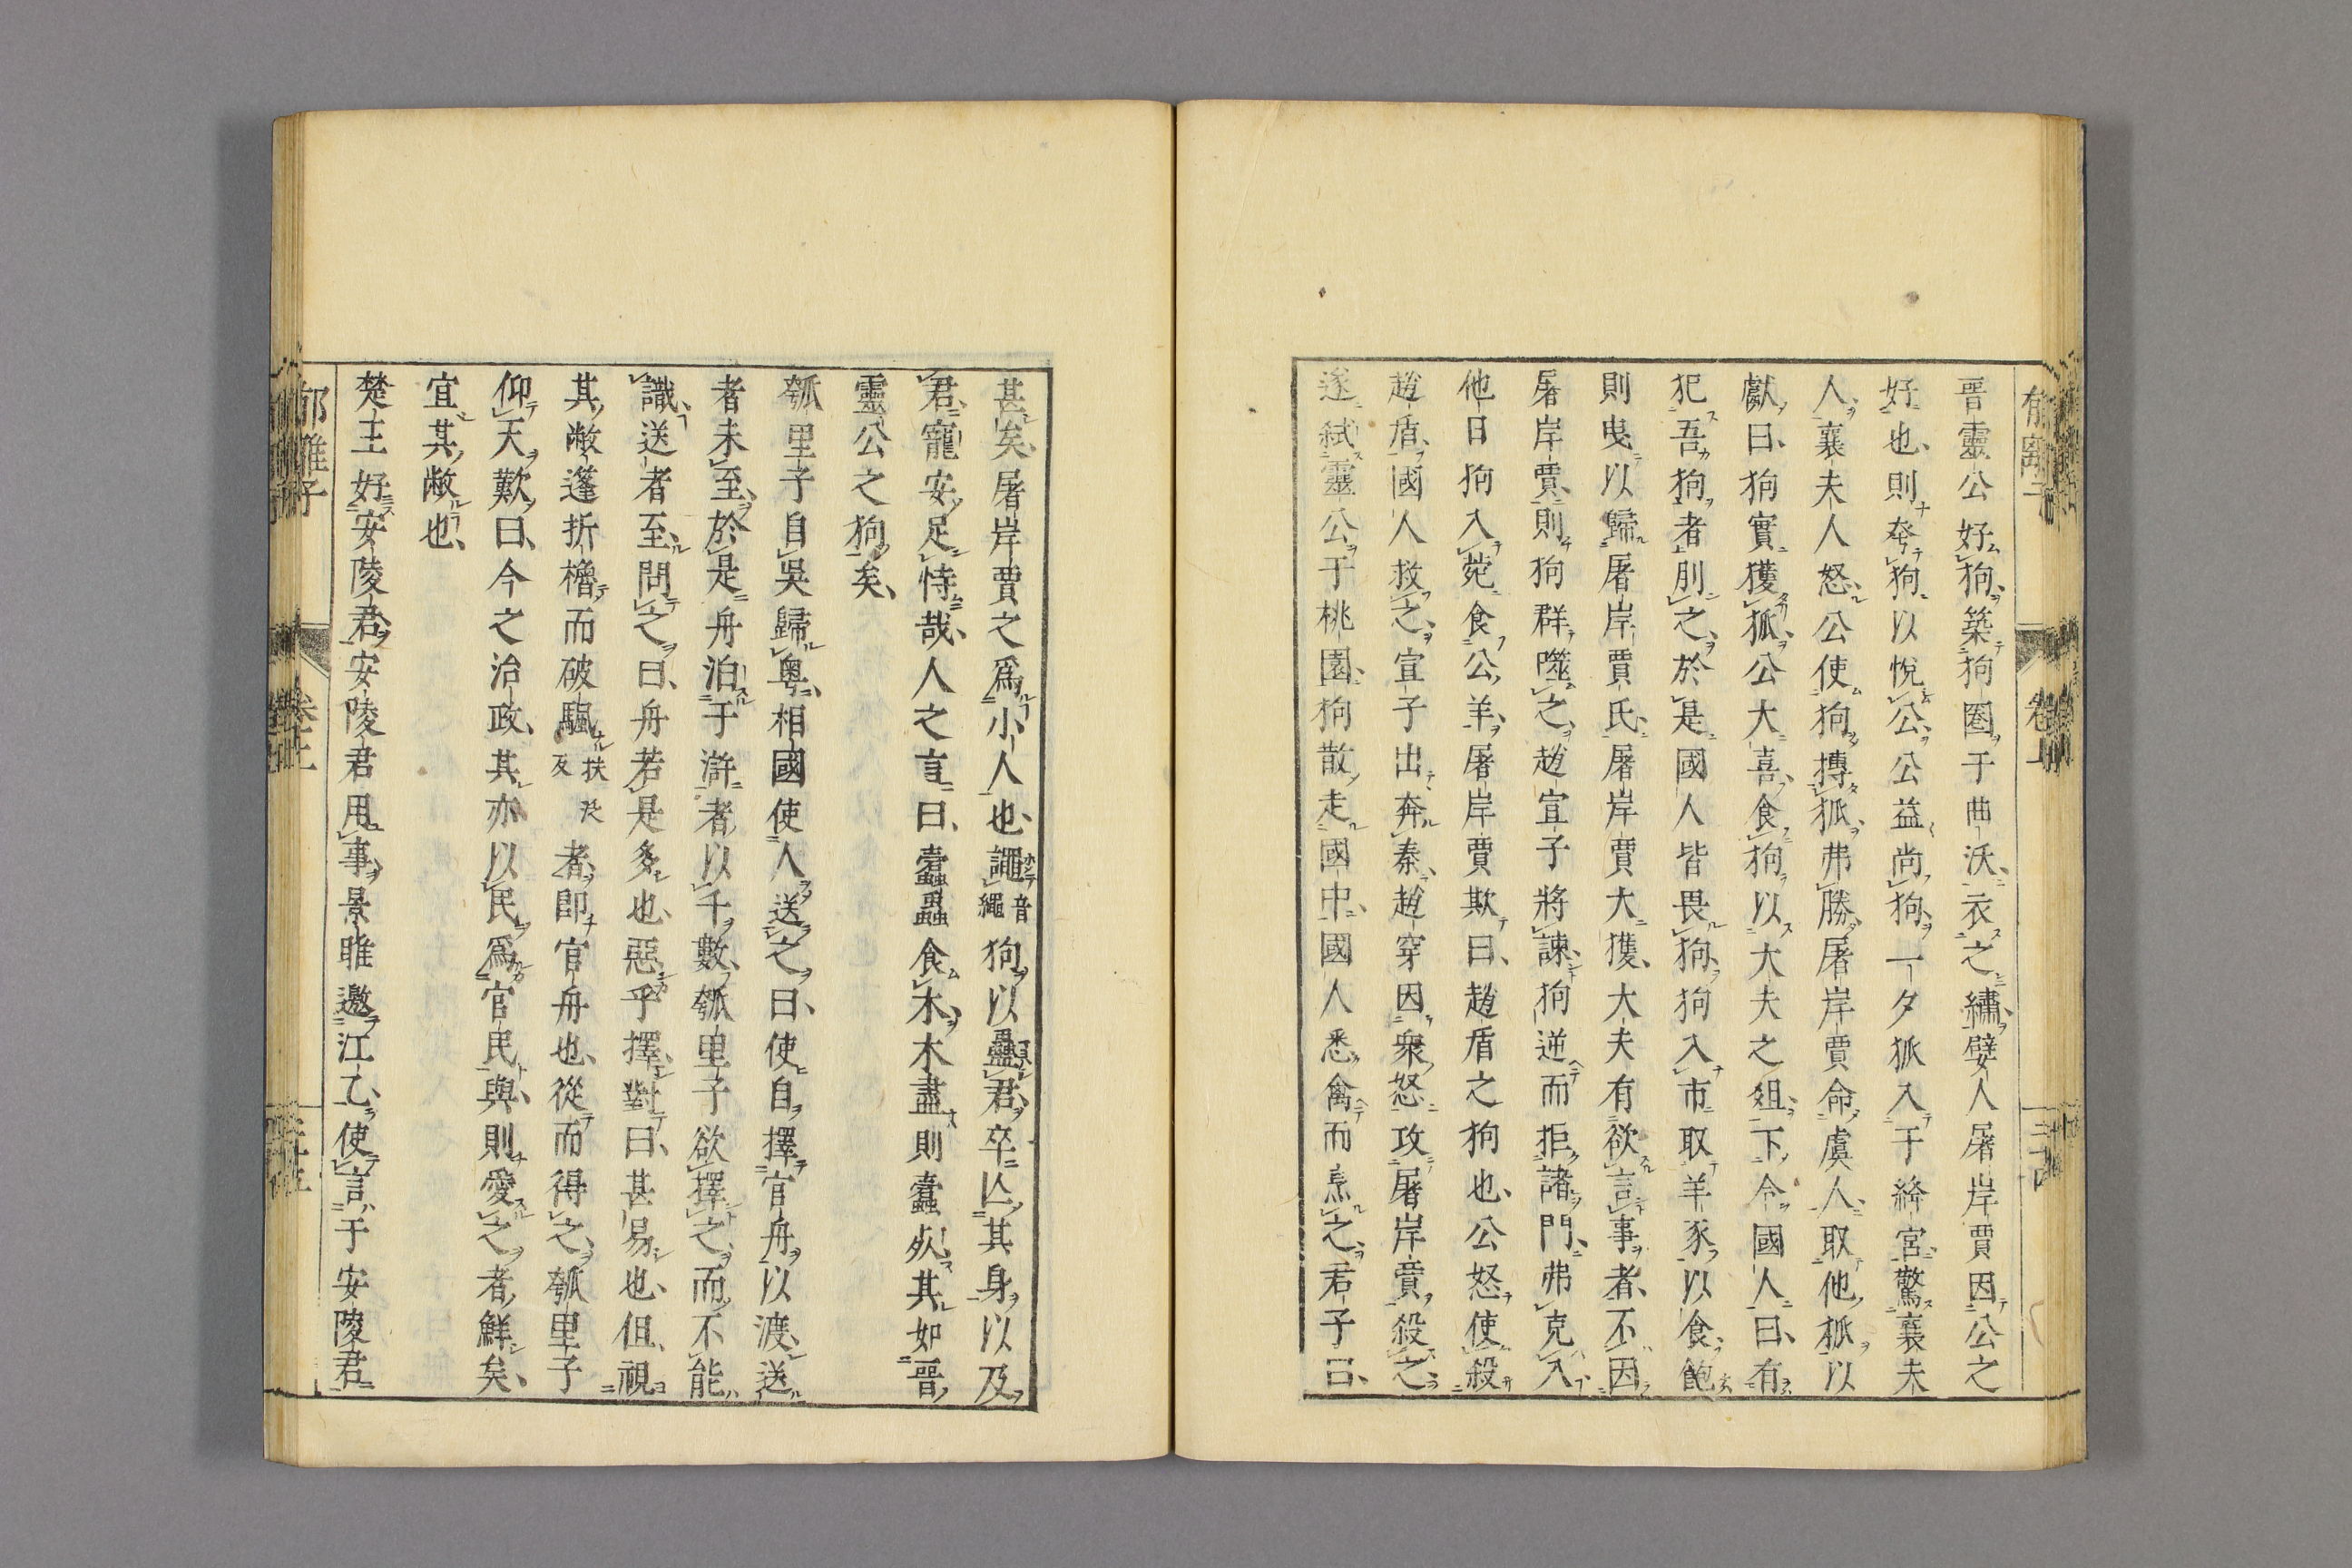 晋靈公好狗築狗圈于曲沃衣之繡嬖人屠岸賈因公之
好也則夸狗以悅公公益尚狗一夕狐入于絳宮驚襄夫
人襄夫人怒公使狗搏狐弗勝屠岸賈命虞人取他狐以
獻曰狗實獲狐公大喜食狗以大夫之俎下令國人曰有
犯吾狗者刖之於是國人皆畏狗狗入市取羊豕以食飽
則曳以歸屠岸賈氏屠岸賈大獲大夫有欲言事者不因
屠岸賈則狗群噬之趙宣子將諫狗逆而拒諸門弗克入
他日狗入苑食公羊屠岸賈欺曰趙盾之狗也公怒使殺
趙盾國人救之宣子出奔秦趙穿因衆怒攻屠岸賈殺之
遂弑靈公于桃園狗散走國中國人悉禽而烹之君子曰
甚矣屠岸賈之爲小人也譝音繩狗以蠱君卒亾其身以及
君寵安足恃哉人之言曰蠹蟲食木木盡則蠹死其如晋
靈公之狗矣
瓠里子自吳歸粵相國使人送之曰使自擇官舟以渡送
者未至於是舟泊于滸者以千數瓠里子欲擇之而不能
識送者至問之曰舟若是多也惡乎擇對曰甚易也但視
其敝蓬折櫓而破颿扶及者即官舟也從而得之瓠里子
仰天歎曰今之治政其亦以民爲官民與則愛之者鮮矣
宜其敝也
楚王好安陵君安陵君用事景睢邀江乙使言于安陵君
郁離子
卷上